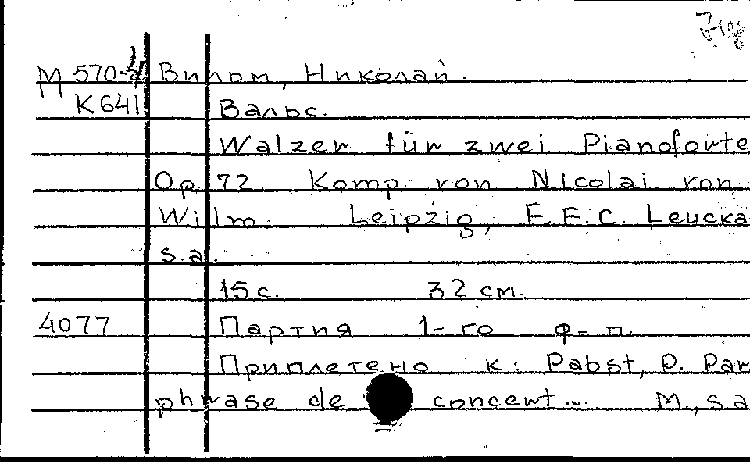 М 570-4 Вильм, Николай.
К 641 Вальс.
Walzer für zwei Pianoforte
Op 72 Komp. von Nicolai von
Wilm. Leipzig, F. E. C. Leucka
s.a.
15 с. 32 см.
4077 Партия 1-го ф-п.
Приплетено к: Pabst, P. Par
phrase de concert... М., s.a